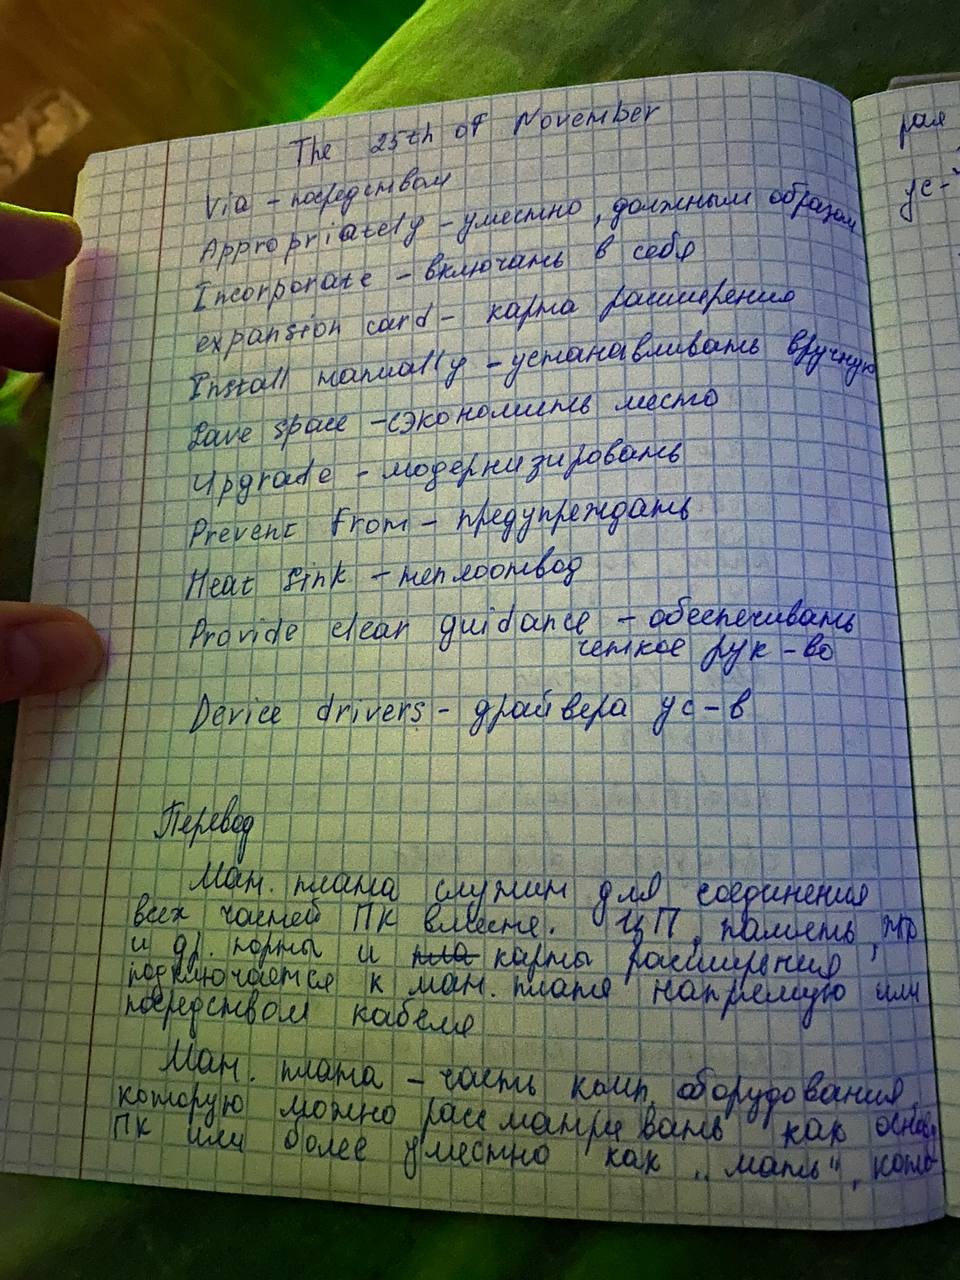 The 25th of November
Via - посредством
Appropriately - уместно, должным образом
Incorporate - включать в себя
expansion card - карта расширения
Install manually - устанавливать вручную
Save space - сэкономить место
Upgrade - модернизировать
Prevent from - предупреждать
Heat sink - теплоотвод
Provide clear guidance - обеспечивать
четкое рук-во
Device drivers - драйвера ус-в
Перевод
Мат. плата служит для соединения
всех частей ПК вместе. ЦП, память,
и др. порты и карты расширения
подключается к мат. плате напрямую или
посредством кабеля
Мат. плата - часть комп. оборудования,
которую можно рассматривать как
ПК или более уместно как "мать", кото-
рая
ус-